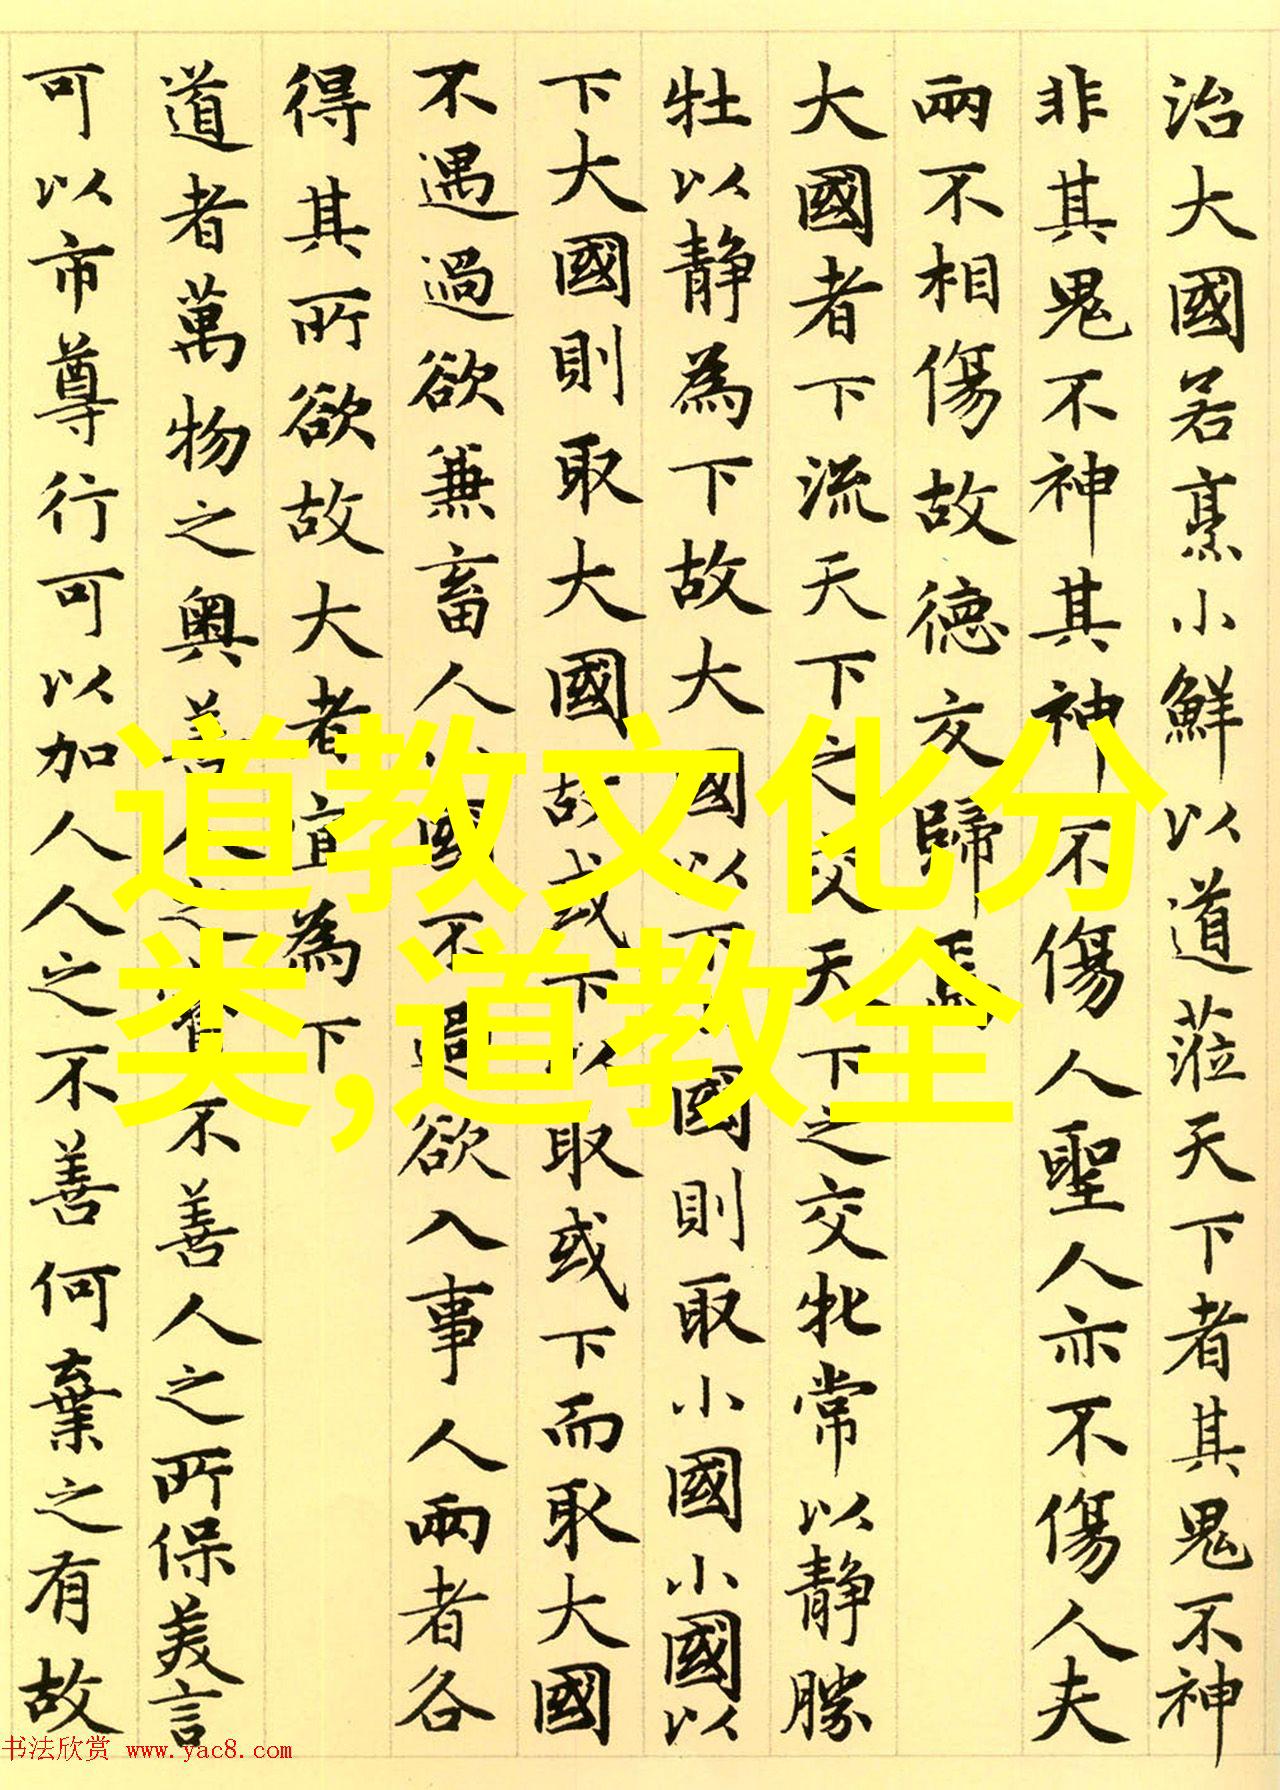 治大國若烹小鮮以道蒞天下者其鬼不神
非其鬼不神其神不傷人聖人亦不傷人夫
兩不相傷故德交歸焉
大國者下流天下之交天下之交牝常以靜勝
牡以靜為下故大國以下小國則取小國小國以
下大國則取大國故或下以取或下而取大國
不遇過欲兼畜人小國不過欲入事人兩者各
得其所欲故大者宜為下
道者萬物之奧善人之寶不善人之所保美言
可以市尊行可以加人人之不善何棄之有故
道教文化分
类,道教全
书法欣赏 www.yac8.com